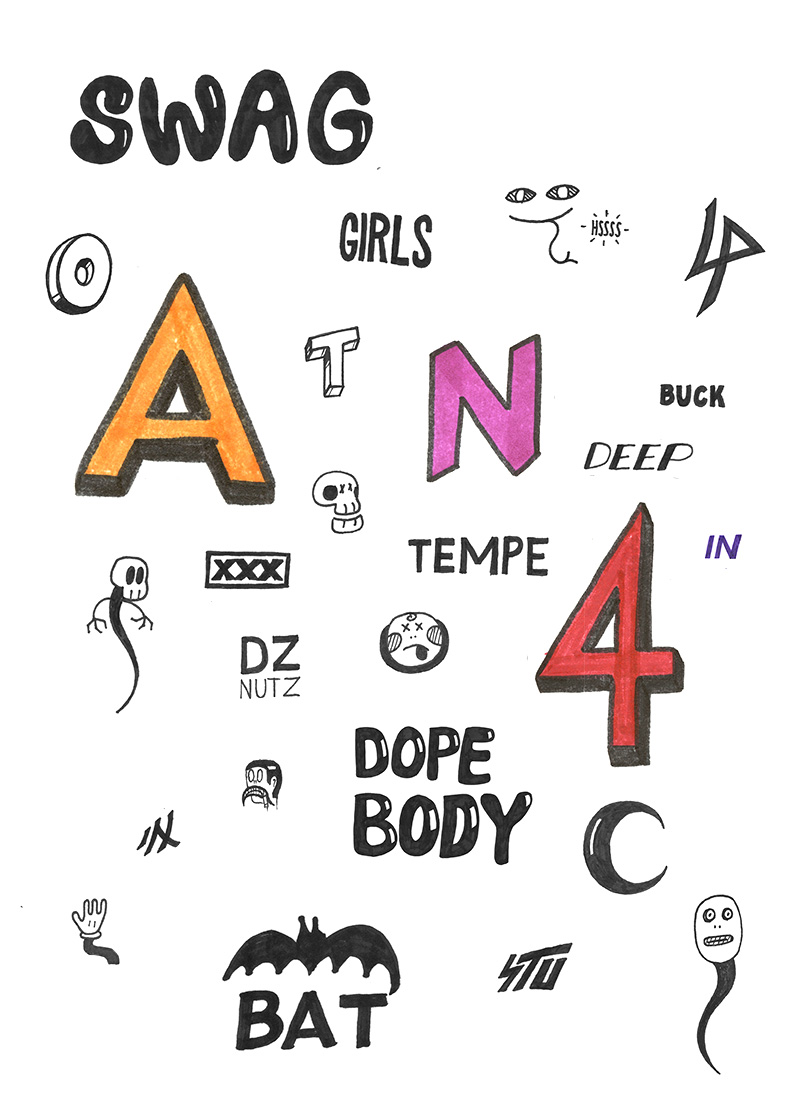 SWAG
GIRLS
- HSSSS -
LP
O
A
T
N
BUCK
DEEP
4
TEMPE
IN
XXX
DZ
NUTZ
DOPE
BODY
BAT
STU